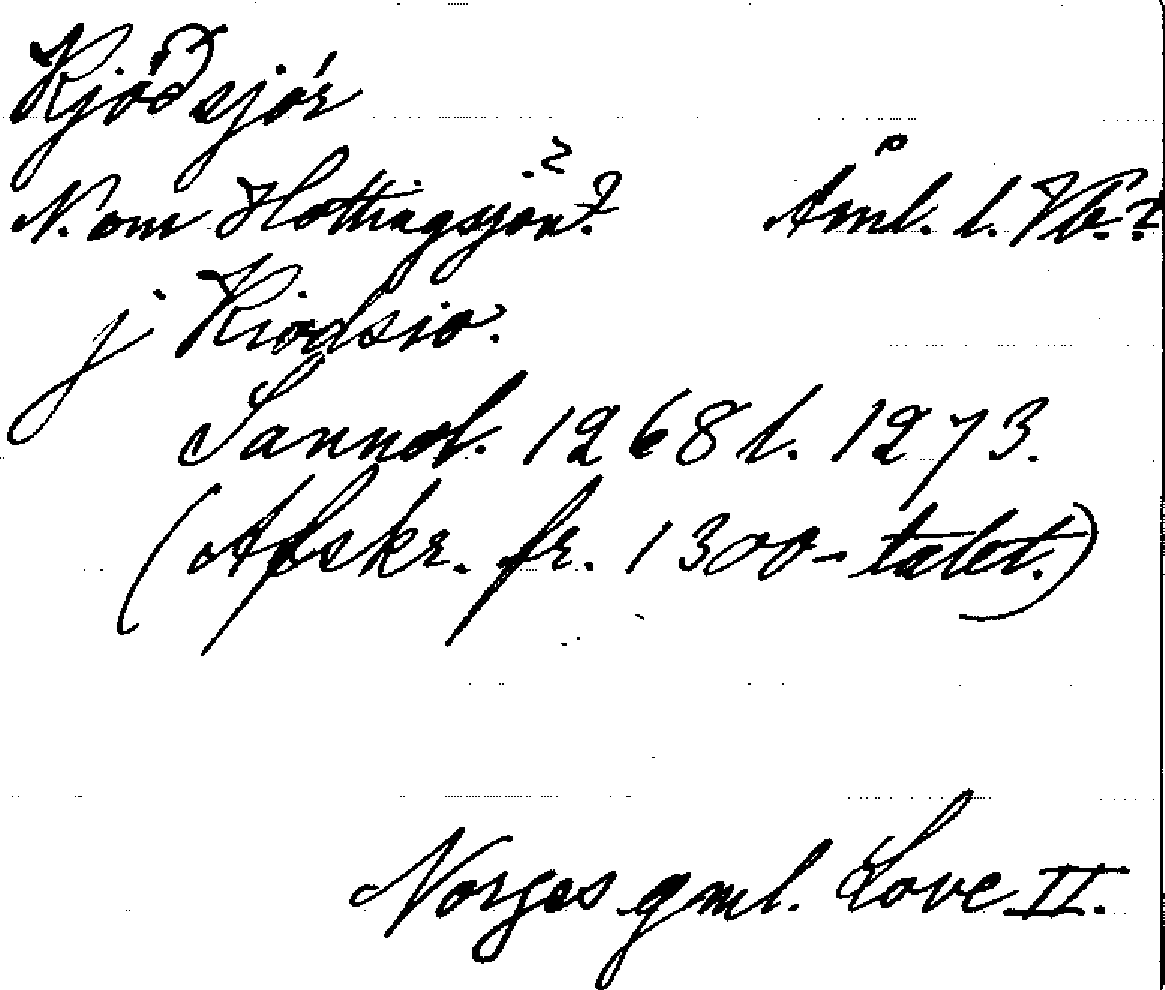 Kjóðsjór
N. om Hottingsjön? Åml. l. Vb.?
j Kiodsio.
Sannol. 1268 l. 1273.
(Afskr. fr. 1300-talet.)
Norges gml. Love II.